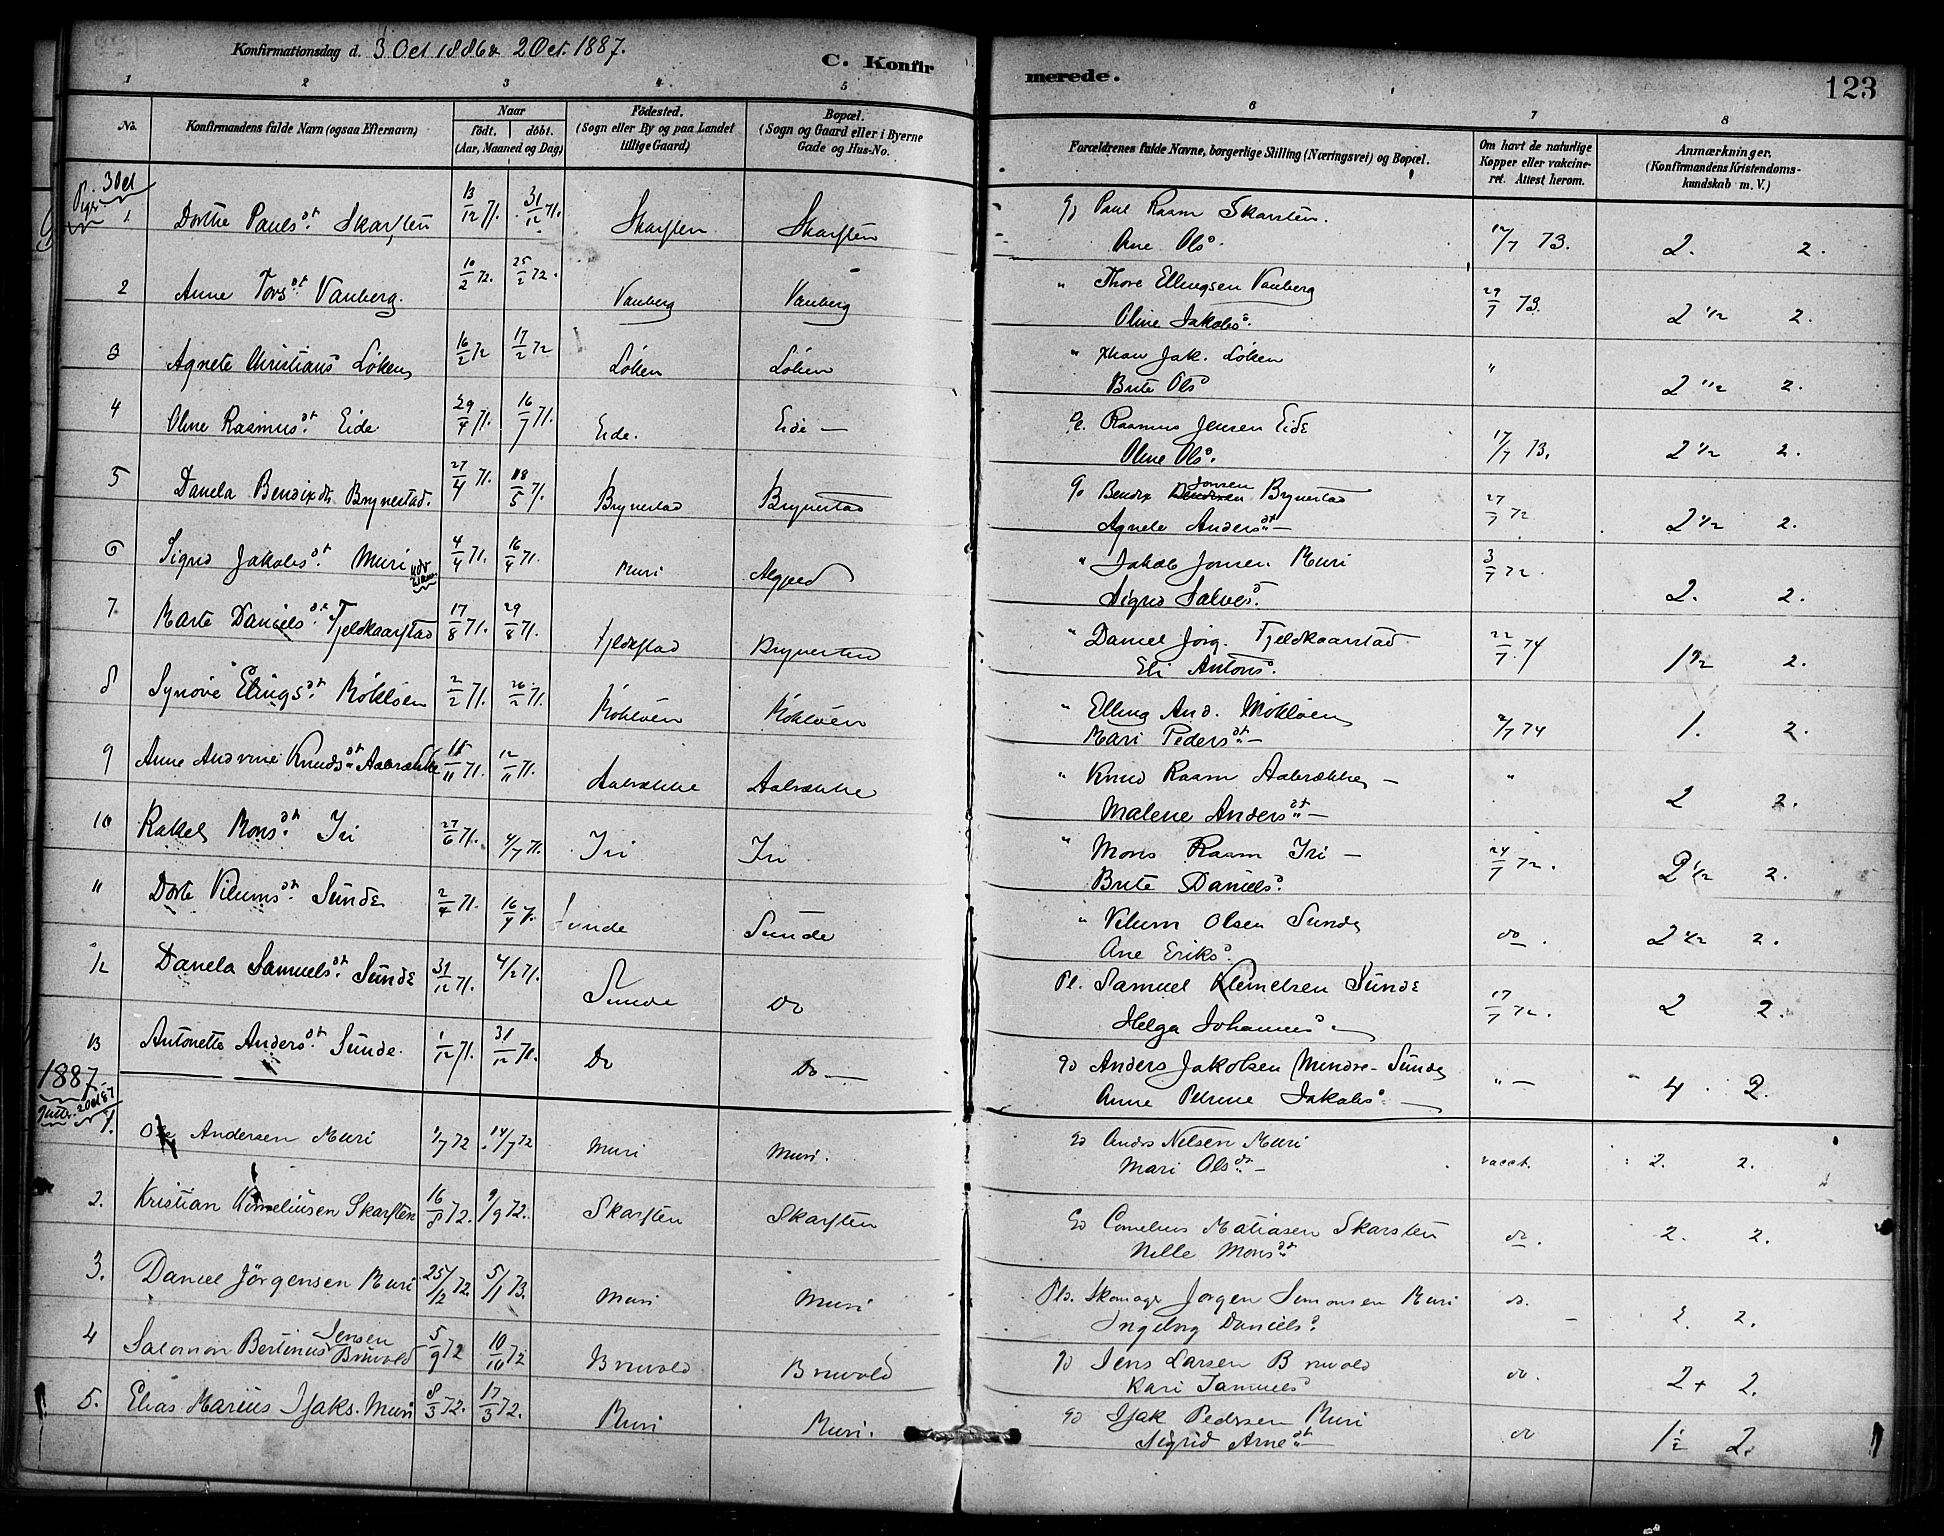 Konfirmationsdag d. 3 Oct 1886 & 2 Oct. 1887.
C. Konfirmerede.
123
1 2 3 4 5 6 7 8
No.
Konfirmandens fulde Navn (ogsaa Efternavn)
Naar
födt. döbt.
(Aar, Maaned og Dag)
Födested.
(Sogn eller By og paa Landet
tillige Gaard)
Bopæl.
(Sogn og Gaard eller i Byerne
Gade og Hus-No.
Forældrenes fulde Navne, borgerlige Stilling (Næringsvei) og Bopæl.
Om havt de naturlige
Kopper eller vakcine-
ret. Attest herom.
Anmærkninger.
(Konfirmandens Kristendoms-
kundskab m. V.)
3 Oct
Piger
1 Dorthe Pauls dt. Skarsten 13/12 71. 31/12 71. Skarsten Skarsten Gj Paul Rasm Skarsten.
Ane Ols d. 12/7 73. 2. 2.
2 Anne Tors dt. Vanberg. 10/2 72. 25/2 72. Vanberg Vanberg " Thore Ellingsen Vanberg
Oline Jakobs d. 29/7 73. 2 1/2 2.
3 Agnete Christians Løken 16/2 72 17/2 72 Løken Løken " Jak. Løken
Brite Ols d " 2 1/2 2.
4 Oline Rasmus dt. Eide 29/4 71. 16/7 71. Eide. Eide — Rasmus Jensen Eide
Oline Ols d. 17/7 73. 2 1/2 2.
5 Danela Bendix dt. Brynestad. 27/4 71. 18/5 71. Brynestad Brynestad Gd Bendix Jonsen Brynestad
Agnete Anders dt — 27/7 72 2 1/2 2.
6 Signd Jakobs dt. Muri 4/4 71. 16/4 71. Muri " Jakob Jonsen Muri
Signd Salves d. 3/7 72. 2. 2.
7. Marte Daniels dt. Fjeldkaarstad 17/8 71. 29/8 71. Fjeldkstad Brynestad " Daniel Jörg. Fjeldkaarstad
Eli Antons d. 22/7 74 1 1/2 2.
8 Synöve Elings dt. Möklöen 2/2 71. 26/2 71. Möklöen Möklöen " Elling And. Möklöen
Mari Peders dt — 2/7 74 1. 2.
9 Anne Andrine Knuds dt Aabrække /11 71. 12/11 71. Aabrække Aabrække " Knud Rasm Aabrække —
Malene Anders dt — " 2 2.
10 Rakel Mons dt. Iri 27/6 71. 4/7 71. Iri Iri " Mons Rasm Iri —
Brite Daniels d. 24/7 72. 2 1/2 2.
11 Dorte Vilums dt. Sunde 2/4 71. 16/4 71. Sunde Sunde " Vilum Olsen Sunde
Ane Eriks d. do. 2 1/2 2.
12 Danela Samuels dt. Sunde 31/12 71. 4/2 71. Sunde Do Pl. Samuel Klemelsen Sunde
Helga Johannes d. 17/7 72. 2 2.
13 Antonette Anders dt. Sunde. 1/12 71. 31/12 71. Do Do — Gd Anders Jakobsen Mindre-Sunde
Anne Petrine Jakobs d — " — 4. 2.
1887
Gutter. 2 Oct 87
1. Andersen Muri 1/7 72 14/7 72 Muri Muri. Gd Andrs Nelsen Muri
Mari Ols dt — vacct. 2. 2.
2. Kristian Korneliusen Skarsten 16/8 72. 9/9 72. Skarsten Skarsten Gd Cornelius Matiasen Skarsten
Nille Mons dt do 2. 2.
3. Daniel Jörgensen Muri 25/12 72. 5/1 73. Muri Muri Pls. Skomager Jörgen Simonsen Muri
Ingebrg Daniels d. do. 2. 2.
4 Salomon Bertinus Jensen Bruvold 5/9 72 10/10 72 Bruvold Bruvold Gd Jens Larsen Bruvold
Kari Samuels d do. 2+ 2.
5. Elias Marius Isaks. Muri 8/3 72. 17/3 72. Muri Muri. Gd Isak Pedersen Muri
Sigrid Arne dt — do 1 1/2 2.